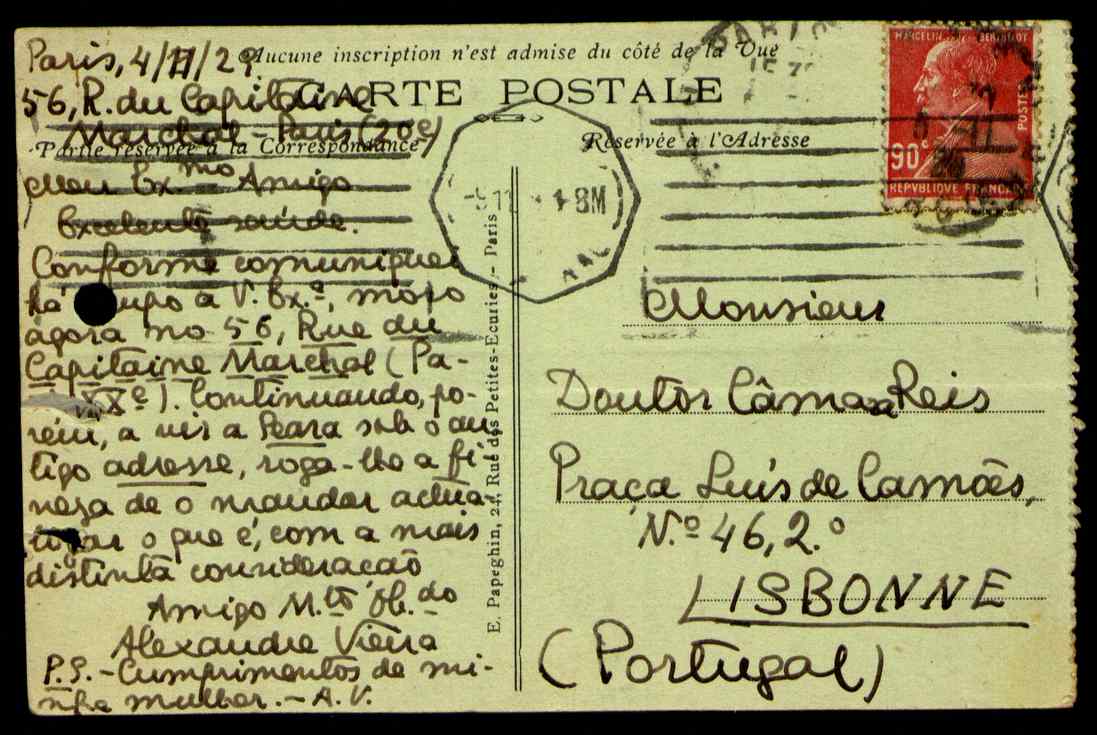 Aucune inscription n'est admise du côté de la Vue
CARTE POSTALE
Partie réservée à la Correspondance
Réservée à l'Adresse
Paris, 4/11/29
56, R. du Capitaine
Marchal - Paris (20e)
Meu Ex.mo Amigo
Excelente saúde.
Conforme comuniquei
há tempo a V. Ex.ª, moro
àgora no 56, Rue du
Capitaine Marchal (Pa-
XXe). Continuando, po-
rém, a vir a Seara sob o an-
tigo adresse, roga-lhe a fi-
neza de o mandar actua-
lizar o que é, com a mais
distinta consideração
Amigo M.to Ob.do
Alexandre Vieira
P.S. - Cumprimentos de mi-
nha mulher. - A.V.
E. Papeghin, 24, Rue des Petites-Ecuries - Paris
MARCELIN BERTHELOT
POSTES
90c
REPVBLIQVE FRANCAISE
Monsieur
Doutor Câmara Reis
Praça Luís de Camões,
N.º 46, 2.º
LISBONNE
(Portugal)